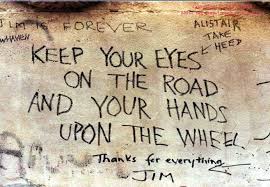 JIM IS FOREVER
ALISTAIR
TAKE
HEED
KEEP YOUR EYES
ON THE ROAD
AND YOUR HANDS
UPON THE WHEEL
Thanks for everything
JIM